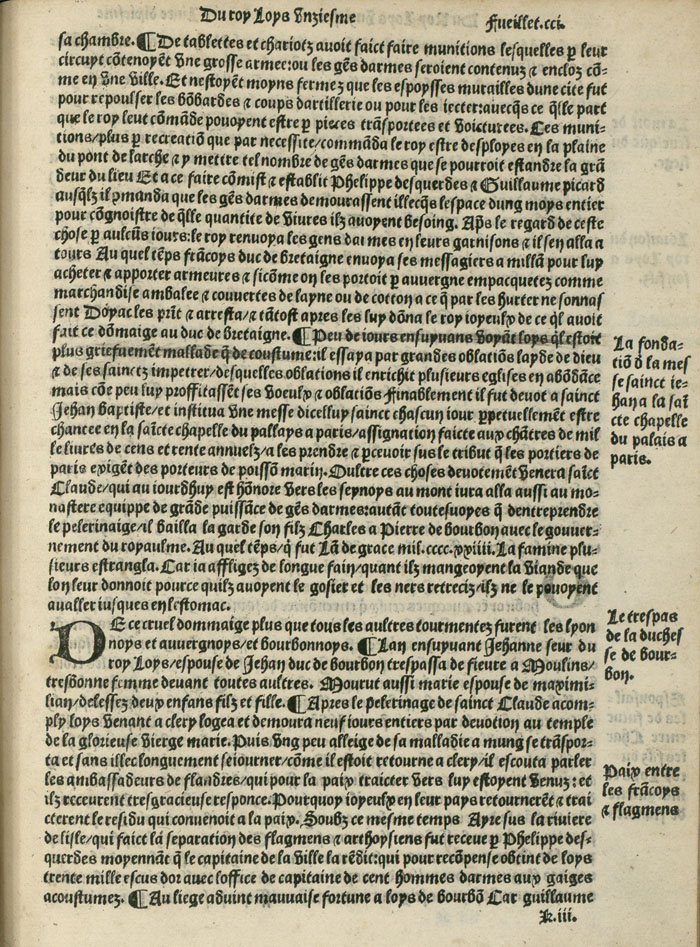 Du roy Loys Unziesme
Fueillet.cci.
sa chambre. ¶ De tablettes et chariotz avoit faict faire munitions lesquelles p̱ leur
circuyt cõtenoyẽt vne grosse armee:ou les gẽs darmes seroient contenuz ⁊ encloz cõ-
me en vne ville. Et nestoyẽt moyns fermez que les espoysses murailles dune cite fut
pour repoulser les bõbardes ⁊ coups dartillerie ou pour les iecter:auecq̃s ce q̃lle part
que le roy leut cõmãde pouoyent estre p̱ pieces trãsportees et voicturees. Ces muni-
tions/plus p̱ recreatiõ que par necessite/commãda le roy estre desployes en la plaine
du pont de larche ⁊ y mettre tel nombre de gẽs darmes que se pourroit estandre la grã
deur du lieu Et a ce faire cõmist ⁊ establit Phelippe desquerdes ⁊ Guillaume picard
ausq̃lz il p̱manda que les gẽs darmes demourassent illecq̃s lespace dung moys entier
pour cõgnoistre de q̃lle quantite de viures ilz auoyent besoing. Ap̃s le regard de ceste
chose p̱ aulcũs iours:le roy renuoya les gens darmes en leurs garnisons ⁊ il sen alla a
tours Au quel tẽps frãcoys duc de bretaigne enuoya ses messagiers a millã pour luy
acheter ⁊ apporter armeures ⁊ sicõme on les portoit p̱ auuergne empacquetez comme
marchandise ambalee ⁊ couuertes de layne ou de cotton a ce q̃ par les hurter ne sonnas
sent Doyac les prĩt ⁊ arresta/⁊ tãtost apres les luy dõna le roy ioyeulx de ce q̃l auoit
fait ce dõmaige au duc de bretaigne. ¶ Peu de iours ensuyuans voyãt loys q̃l estoit
plus griefuemẽt mallade q̃ de coustume:il essaya par grandes oblatiõs layde de dieu
⁊ de ses sainctz impetrer/desquelles oblatiõs il enrichit plusieurs eglises en abõdãce
mais cõe peu luy proffitassẽt ses voeulx ⁊ oblatiõs Finablement il fut deuot a sainct
Jehan baptiste/et institua vne messe dicelluy sainct chascun iour p̱petuellemẽt estre
chantee en la saĩcte chapelle du pallays a paris/assignation faicte aux chãtres de mil
le liures de cens et rente annuelz/a les prendre ⁊ p̱cevoir sus le tribut q̃ les portiers de
paris exigẽt des porteurs de poissõ marin. Oultre ces choses deuotemẽt venera saĩct
Claude/qui au iourdhuy est hõnore vers les seynoys au mont iura alla aussi au mo-
nastere equippe de grãde puissãce de gẽs darmes:autãt toutesuoyes q̃ dentreprendre
le pelerinaige/il bailla la garde son filz Charles a Pierre de bourbon auec le gouuer-
nement du royaulme. Au quel tẽps/q̃ fut Lã de grace mil.cccc.xxiiii. La famine plu-
sieurs estrangla. Car ia affligez de longue fain/quant ilz mangeoyent la viande que
lon leur donnoit pource quilz auoyent le gosier et les ners retrecíz/ilz ne le pouoyent
auvaller iusques en lestomac.
DE ce cruel dommaige plus que tous les aultres tourmentez furent les lyon
noys et auuergnoys/et bourbonnoys. ¶ Lan ensuyuant Jehanne seur du
roy Loys/espouse de Jehan duc de bourbon trespassa de fieure a Moulins/
tresbonne femme deuant toutes aultres. Mourut aussi marie espouse de maximi-
lian/delessez deux enfans filz et fille. ¶ Apres le pelerinage de sainct Claude acom-
ply loys venant a clery logea et demoura neuf iours entiers par deuotion au temple
de la glorieuse vierge marie. Puis vng peu alleige de sa malladie a mung se trãspor-
ta et sans illec longuement seiourner/cõme il estoit retourne a clery/il escouta parler
les ambassadeurs de flandres/qui pour la paix traicter vers luy estoyent venuz: et
ilz receurent tresgracieuse responce. Pourquoy ioyeulx en leur pays retournerẽt ⁊ trai
cterent le residu qui conuenoit a la paix. Soubz ce mesme temps Ayre sus la riuiere
de lisle/qui faict la separation des flagmens ⁊ arthoysiens fut receue p̱ Phelippe des-
querdes moyennãt q̃ le capitaine de la ville la rẽdit:qui pour recõpense obtint de loys
trente mille escus dor auec loffice de capitaine de cent hommes darmes aux gaiges
acoustumez. ¶ Au liege aduint mauuaise fortune a loys de bourbõ Car guillaume
k.iii.
La fonda-
tiõ d̃ la mes
se sainct ie-
han a la saĩ
cte chapelle
du palais a
paris.
Le trespas
de la duches
se de bour-
bon.
Paix entre
les frãcoys
⁊ flagmens